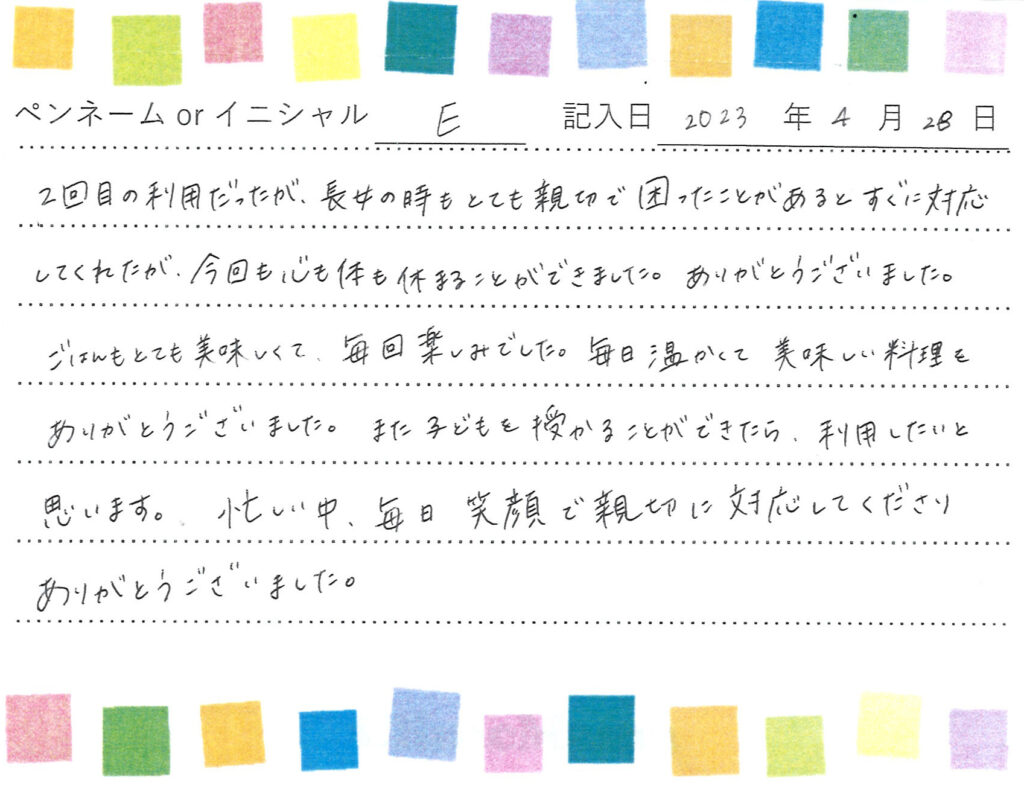 ペンネーム or イニシャル E 記入日 2023 年 4 月 28 日
2回目の利用だったが、長女の時もとても親切で困ったことがあるとすぐに対応
してくれたが、今回も心も体も休まることができました。ありがとうございました。
ごはんもとても美味しくて、毎回楽しみでした。毎日温かくて美味しい料理を
ありがとうございました。また子どもを授かることができたら、利用したいと
思います。忙しい中、毎日笑顔で親切に対応してくださり
ありがとうございました。